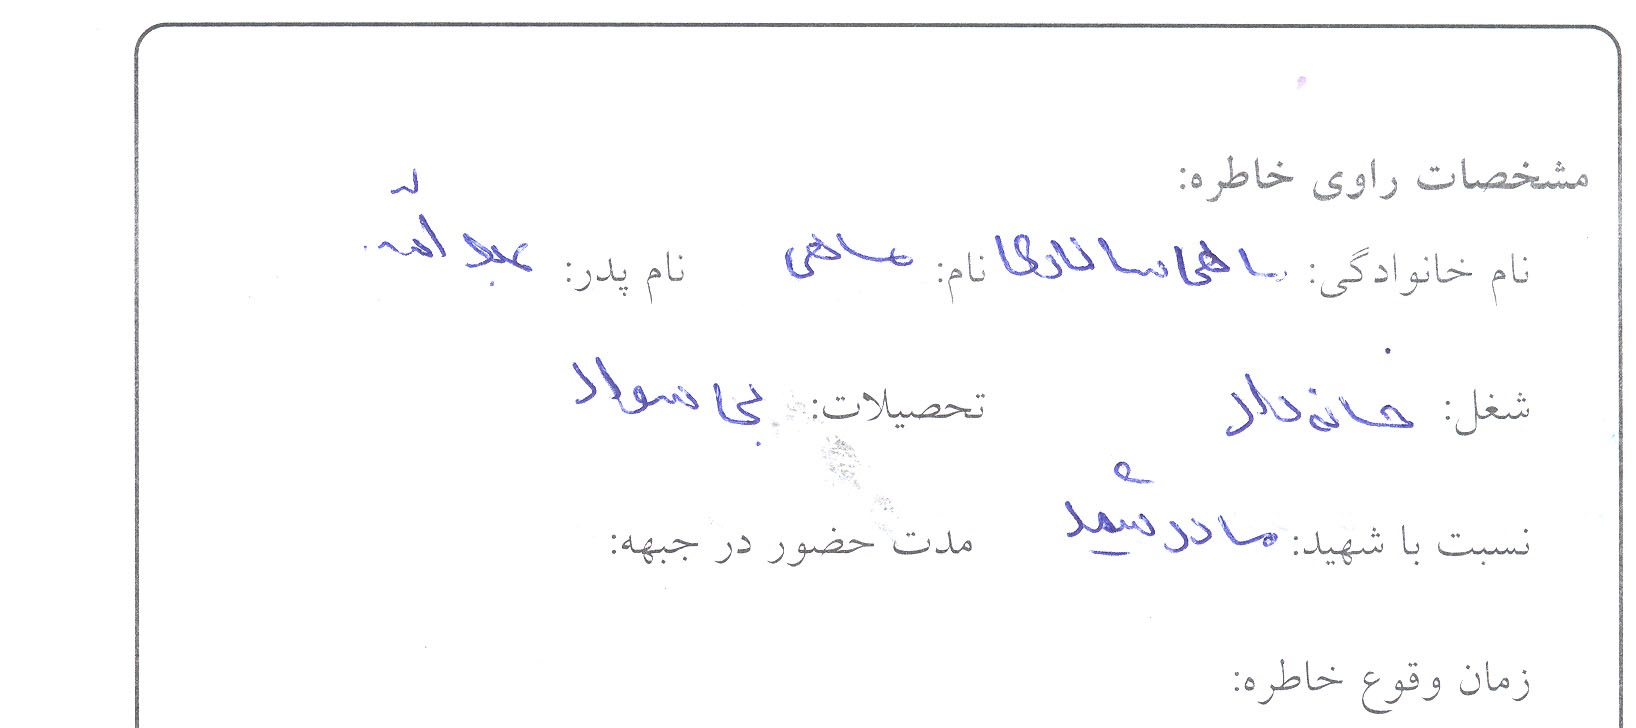 مشخصات راوی خاطره:
نام خانوادگی: نام: ماهی نام پدر: عبدالله
شغل: خانه دار تحصیلات: بی سواد
نسبت با شهید: مادر شهید مدت حضور در جبهه:
زمان وقوع خاطره: